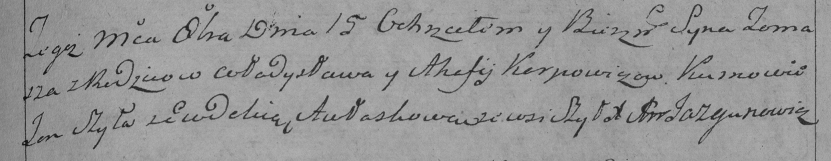 Tegoż Mca Obra Dnia 15 Ochrzciłem y Bierzm Syna Toma
sza z Rodzicow Władysława y Akafij Karpowiczow. Kumowie
Jan Szyła z Ewdokią Antoszkową ze wsi Szył X Jazgunowicz